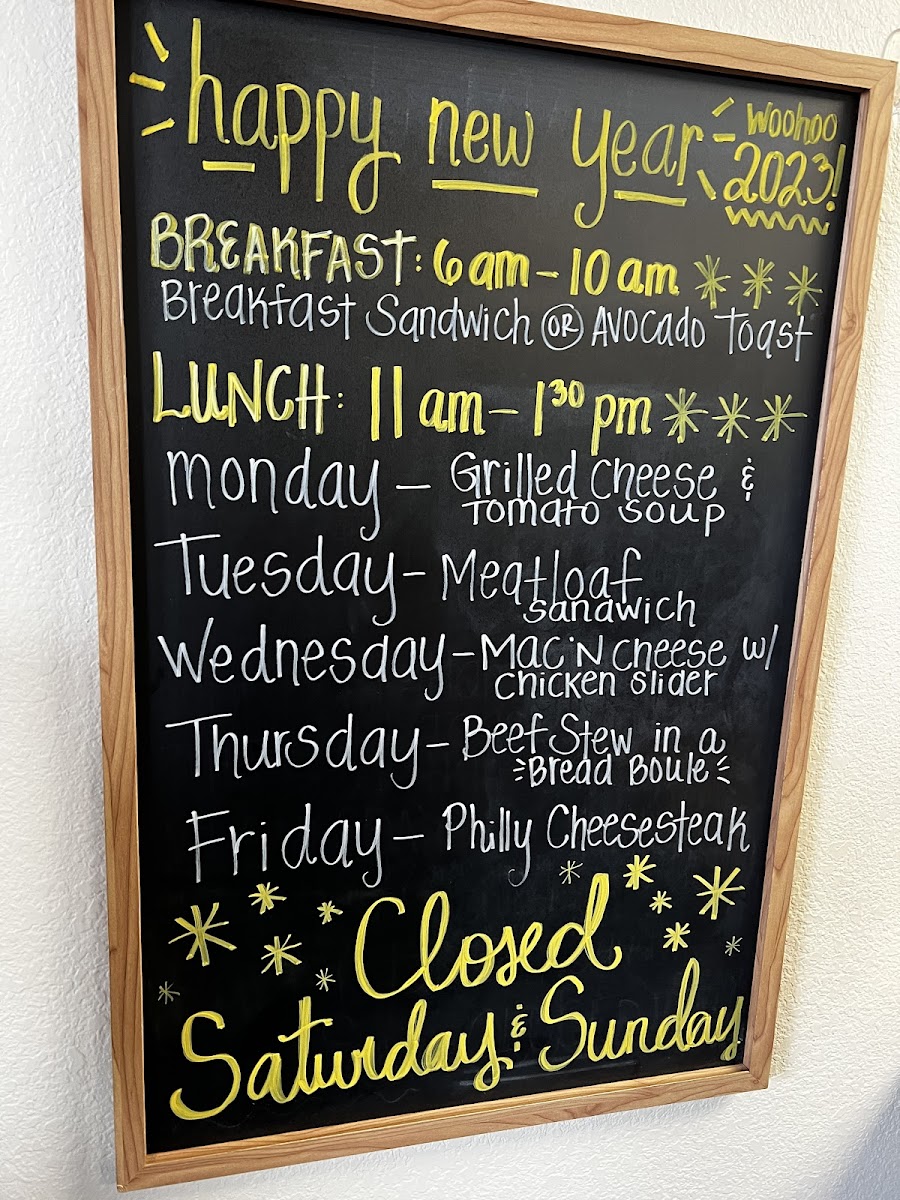 happy new year woohoo
2023!
BREAKFAST: 6am - 10am
Breakfast Sandwich OR Avocado Toast
LUNCH: 11am - 1³⁰ pm
monday - Grilled Cheese &
Tomato Soup
Tuesday - Meatloaf
Sandwich
Wednesday - Mac 'N Cheese w/
Chicken Slider
Thursday - Beef Stew in a
Bread Boule
Friday - Philly Cheesesteak
Closed
Saturday & Sunday